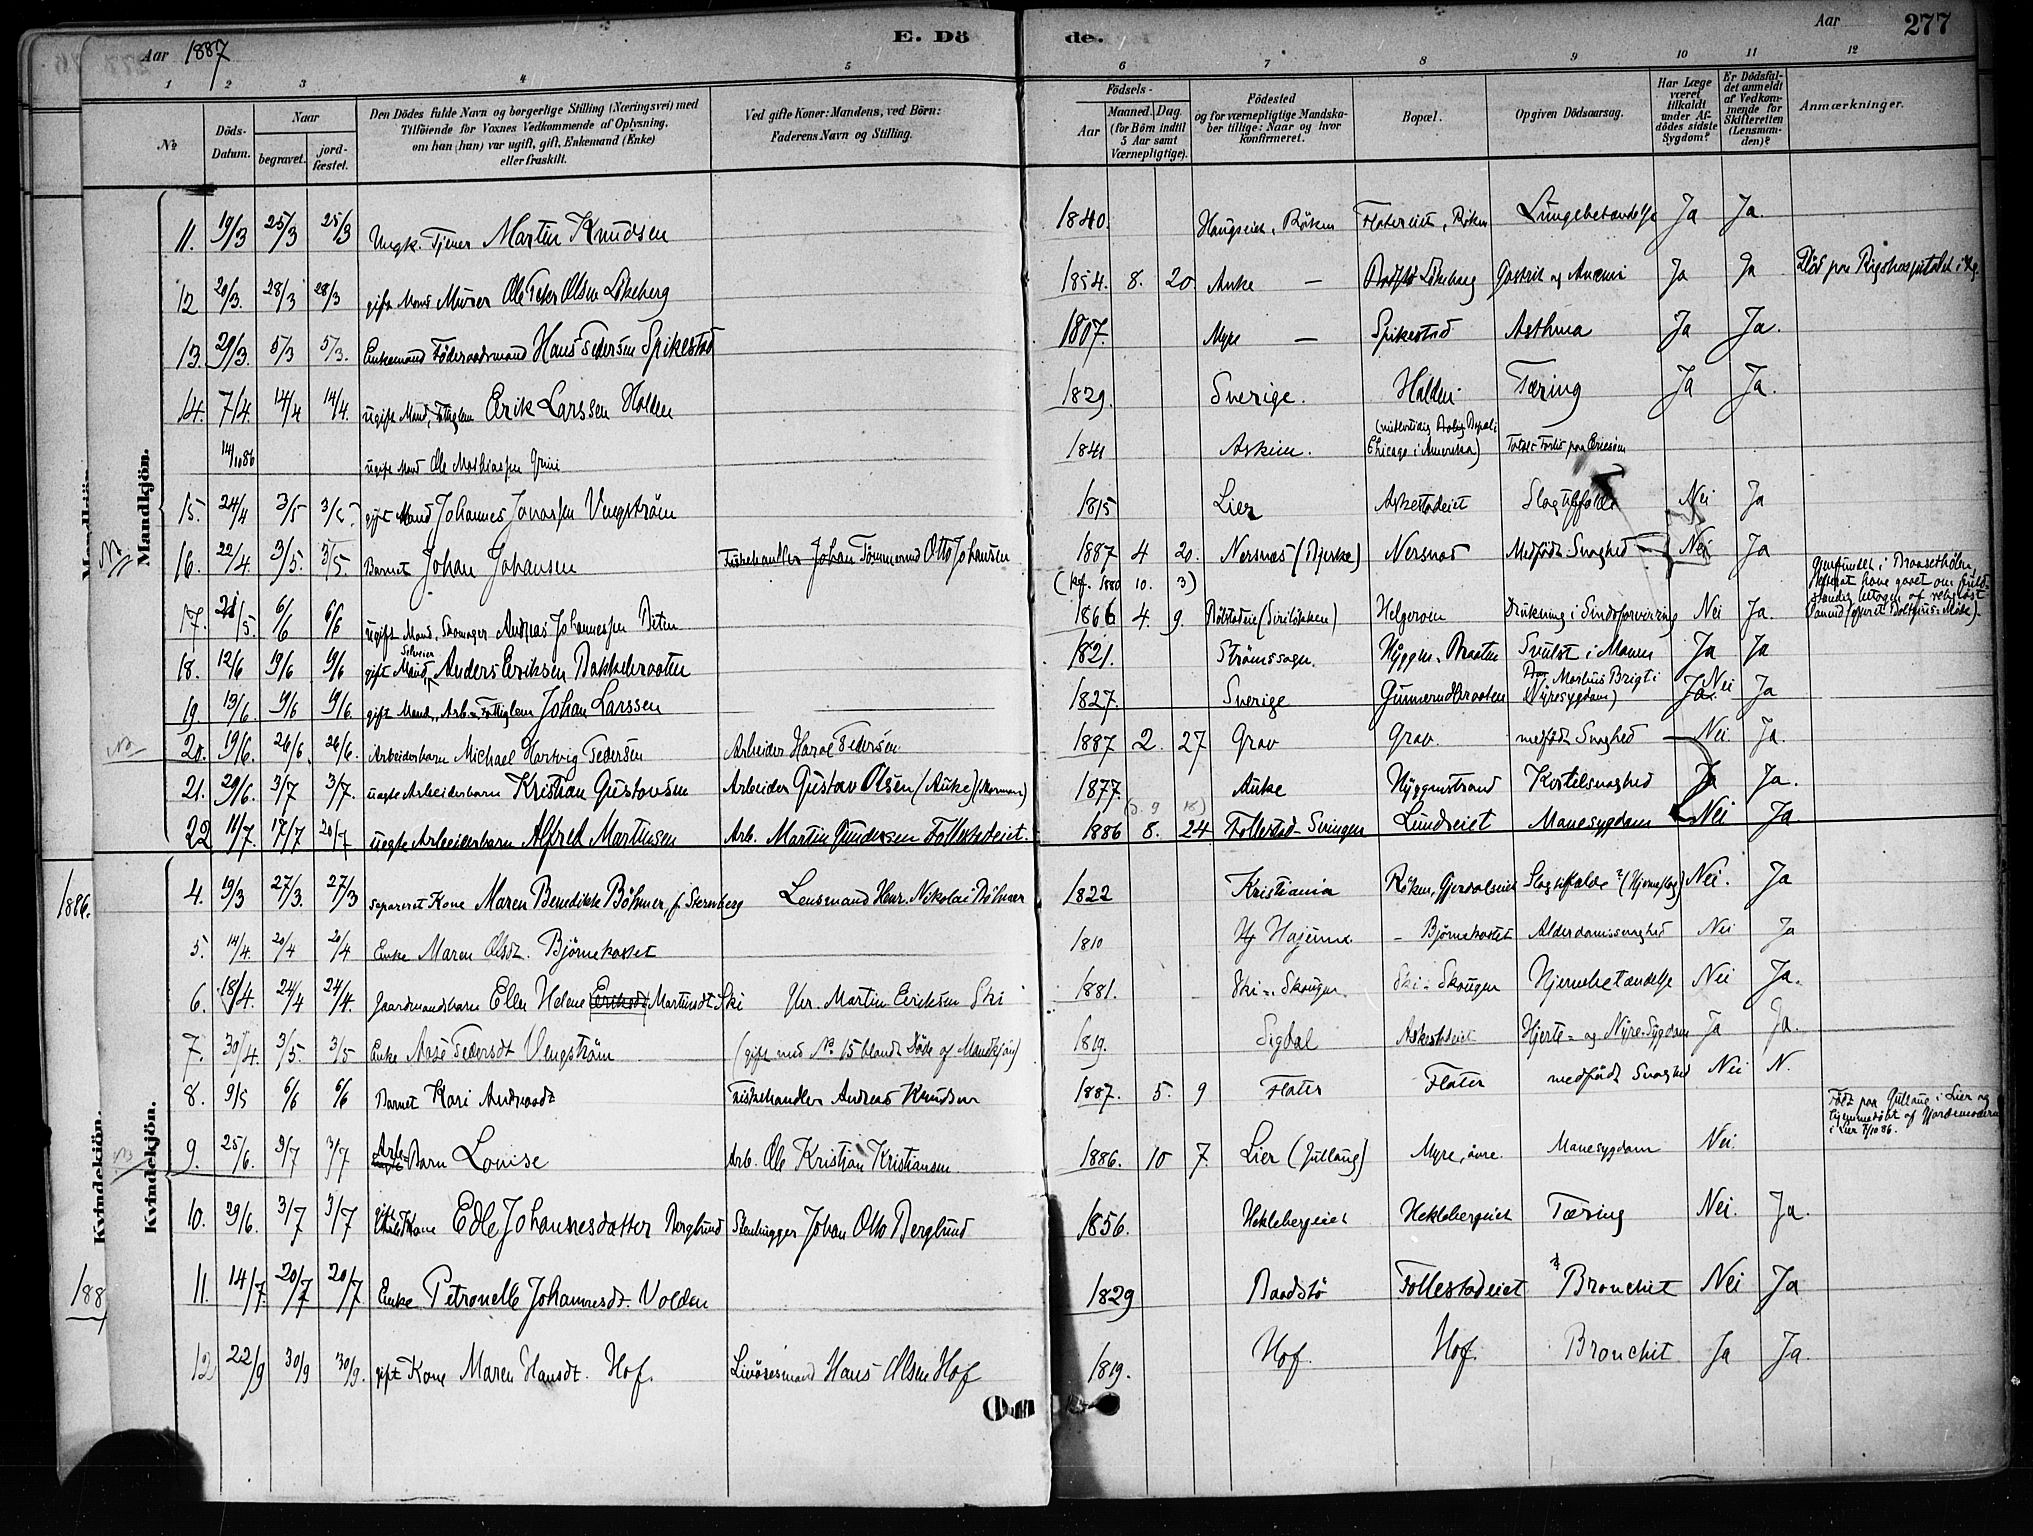 Aar 1887
E. Dö de.
Aar 277
1 2 3 4 5 6 7 8 9 10 11 12
No
Döds-Datum.
Naar
begravet.
jordfæstet.
Den Dödes fulde Navn og borgerlige Stilling (Næringsvei) med
Tilföiende for Voxnes Vedkommende af Oplysning,
om han (hun) var ugift, gift, Enkemand (Enke)
eller fraskilt.
Ved gifte Koner: Mandens, ved Börn:
Faderens Navn og Stilling.
Födsels-
Aar
Maaned. Dag.
(for Börn indtil
5 Aar samt
Værnepligtige).
Födested
og for værnepligtige Mandska-
ber tillige: Naar og hvor
konfirmeret.
Bopæl.
Opgiven Dödsaarsag.
Har Læge
været
tilkaldt
under Af-
dödes sidste
Sygdom?
Er Dödsfal-
det anmeldt
af Vedkom-
mende for
Skifteretten
(Lensman-
den)?
Anmærkninger.
Mandkjön.
11. 19/3 25/3 25/3 Ungk. Tjener Martin Knudsen 1840. Haugseiet, Röken Flatereiet, Röken Lungebetændelse Ja Ja.
12 20/3. 28/3 28/3 gift Mand Murer Ole Peter Olsen Lökeberg 1854. 8. 20 Auke — Lökeberg Gastrit og Anæmi Ja Ja Död paa Rigshospitalet i Kr.
13. 29/3 5/3 5/3. Enkemand Föderaadsmand Hans Pedersen Spikestad 1807. Myre — Spikestad Asthma Ja Ja.
14. 7/4. 14/4 14/4. ugift Mand, Fattiglem Erik Larssen Holden 1829. Sverige. Holden. Tæring Ja Ja.
14/10 86 ugift Mand Ole Mathiassen Grini 1841 Askim. (midlertidig Bopæl: Chicago i Amerika)
15. 24/4 3/5 3/5. gift Mand Johannes Jonassen Vengström 1815 Lier Askestadeiet Slagtilfælde Nei Ja
16. 22/4. 3/5. 3/5. Barnet Johan Johansen Fiskehandler Johan Tömmermd Otto Johansen 1887 4 20. Nersnæs (Bjerke) Nersnæs Medfödt Svaghed Nei Ja
(kf. 1880 10. 3)
17. 21/5. 6/6 6/6 ugift Mand, Skomager Andreas Johannessen 1866 4. 9. Helgeroen Drukning i Sindsforvirring Nei Ja. Gjenfundet i
18. 12/6 19/6 19/6 gift Mand, Selveier Anders Eriksen Bakkebraaten 1821. Strömssogn. Hyggen, Braaten Svulst i Maven Ja Ja
19. 13/6. 19/6 19/6. gift Mand, Arb. Fattiglem Johan Larssen 1827. Sverige Gunnerudbraaten Morbus Brigti (Nyresygdom) Ja Nei Ja
20. 19/6. 26/6. 26/6. Arbeiderbarn Michael Hartvig Pedersen Arbeider Haral Pedersen 1887 2. 27 Grav Grav. medfödt Svaghed Nei Ja.
21. 29/6. 3/7 3/7. uægte Arbeiderbarn Kristian Gustavsen Arbeider Gustav Olsen (Auke) 1877. Auke Hyggenstrand Kirtelsvaghed Ja Ja.
22 11/7. 17/7 20/7 uægte Arbeiderbarn Alfred Martinsen Arb. Martin Gundersen Follestadeiet. 1886 8. 24 Follestad-Svingen Lundseiet Mavesygdom Nei Ja
Kvindekjön.
1886.
4. 19/3 27/3. 27/3 separeret Kone Maren Benedikte Böhmer, f. Sternberg Lensmand Henr. Nikolai Böhmer 1822 Kristiania Röken, Slagtilfælde? (Hjerneslag) Nei. Ja
5. 14/4. 20/4 20/4 Enke Maren Olsdt. Björnekastet 1810 — Björnekastet Alderdomssvaghed Nei Ja
6. 18/4. 24/4 24/4. Gaardmandsbarn Ellen Helene Eriksdt Martinsdt Ski Gbr. Martin Eriksen Ski 1881. Ski i Skouger. Ski i Skouger Hjernebetændelse Nei Ja.
7. 30/4. 3/5. 3/5 Enke Aase Pedersdt Vengström (gift med No 15 blandt Döde af Mandkjön) 1819. Sigdal Askestadeiet Hjerte- og Nyre-Sygdom Ja Ja.
8. 9/5 6/6 6/6 Barnet Kari Andreasdt. Fiskehandler Andreas Knudsen 1887. 5. 9 Flater Flater medfödt Svaghed Nei N.
9. 25/6. 3/7 3/7 Arb. Barn Louise Arb. Ole Kristian Kristiansen 1886. 10 7. Lier (Gullaug) Myre, övre. Mavesygdom Nei. Födt paa Gullaug i Lier og hjemmedöbt af Gjordemoderen i Lier 7/10 86.
10. 29/6. 3/7 3/7 gift Kone Edle Johannesdatter Berglund Stenhugger Johan Otto Berglund 1856. Hekleberg​eiet Heklebergeiet Tæring Nei. Ja.
188
11. 14/7 20/7 20/7 Enke Petronelle Johannesdt. Volden 1829 Baadstö Follestadeiet Bronchit Nei Ja
12) 22/9 30/9 30/9. gift Kone Maren Hansdt. Hof. Hans Olsen Hof 1819. Hof. Hof. Bronchit Ja Ja.